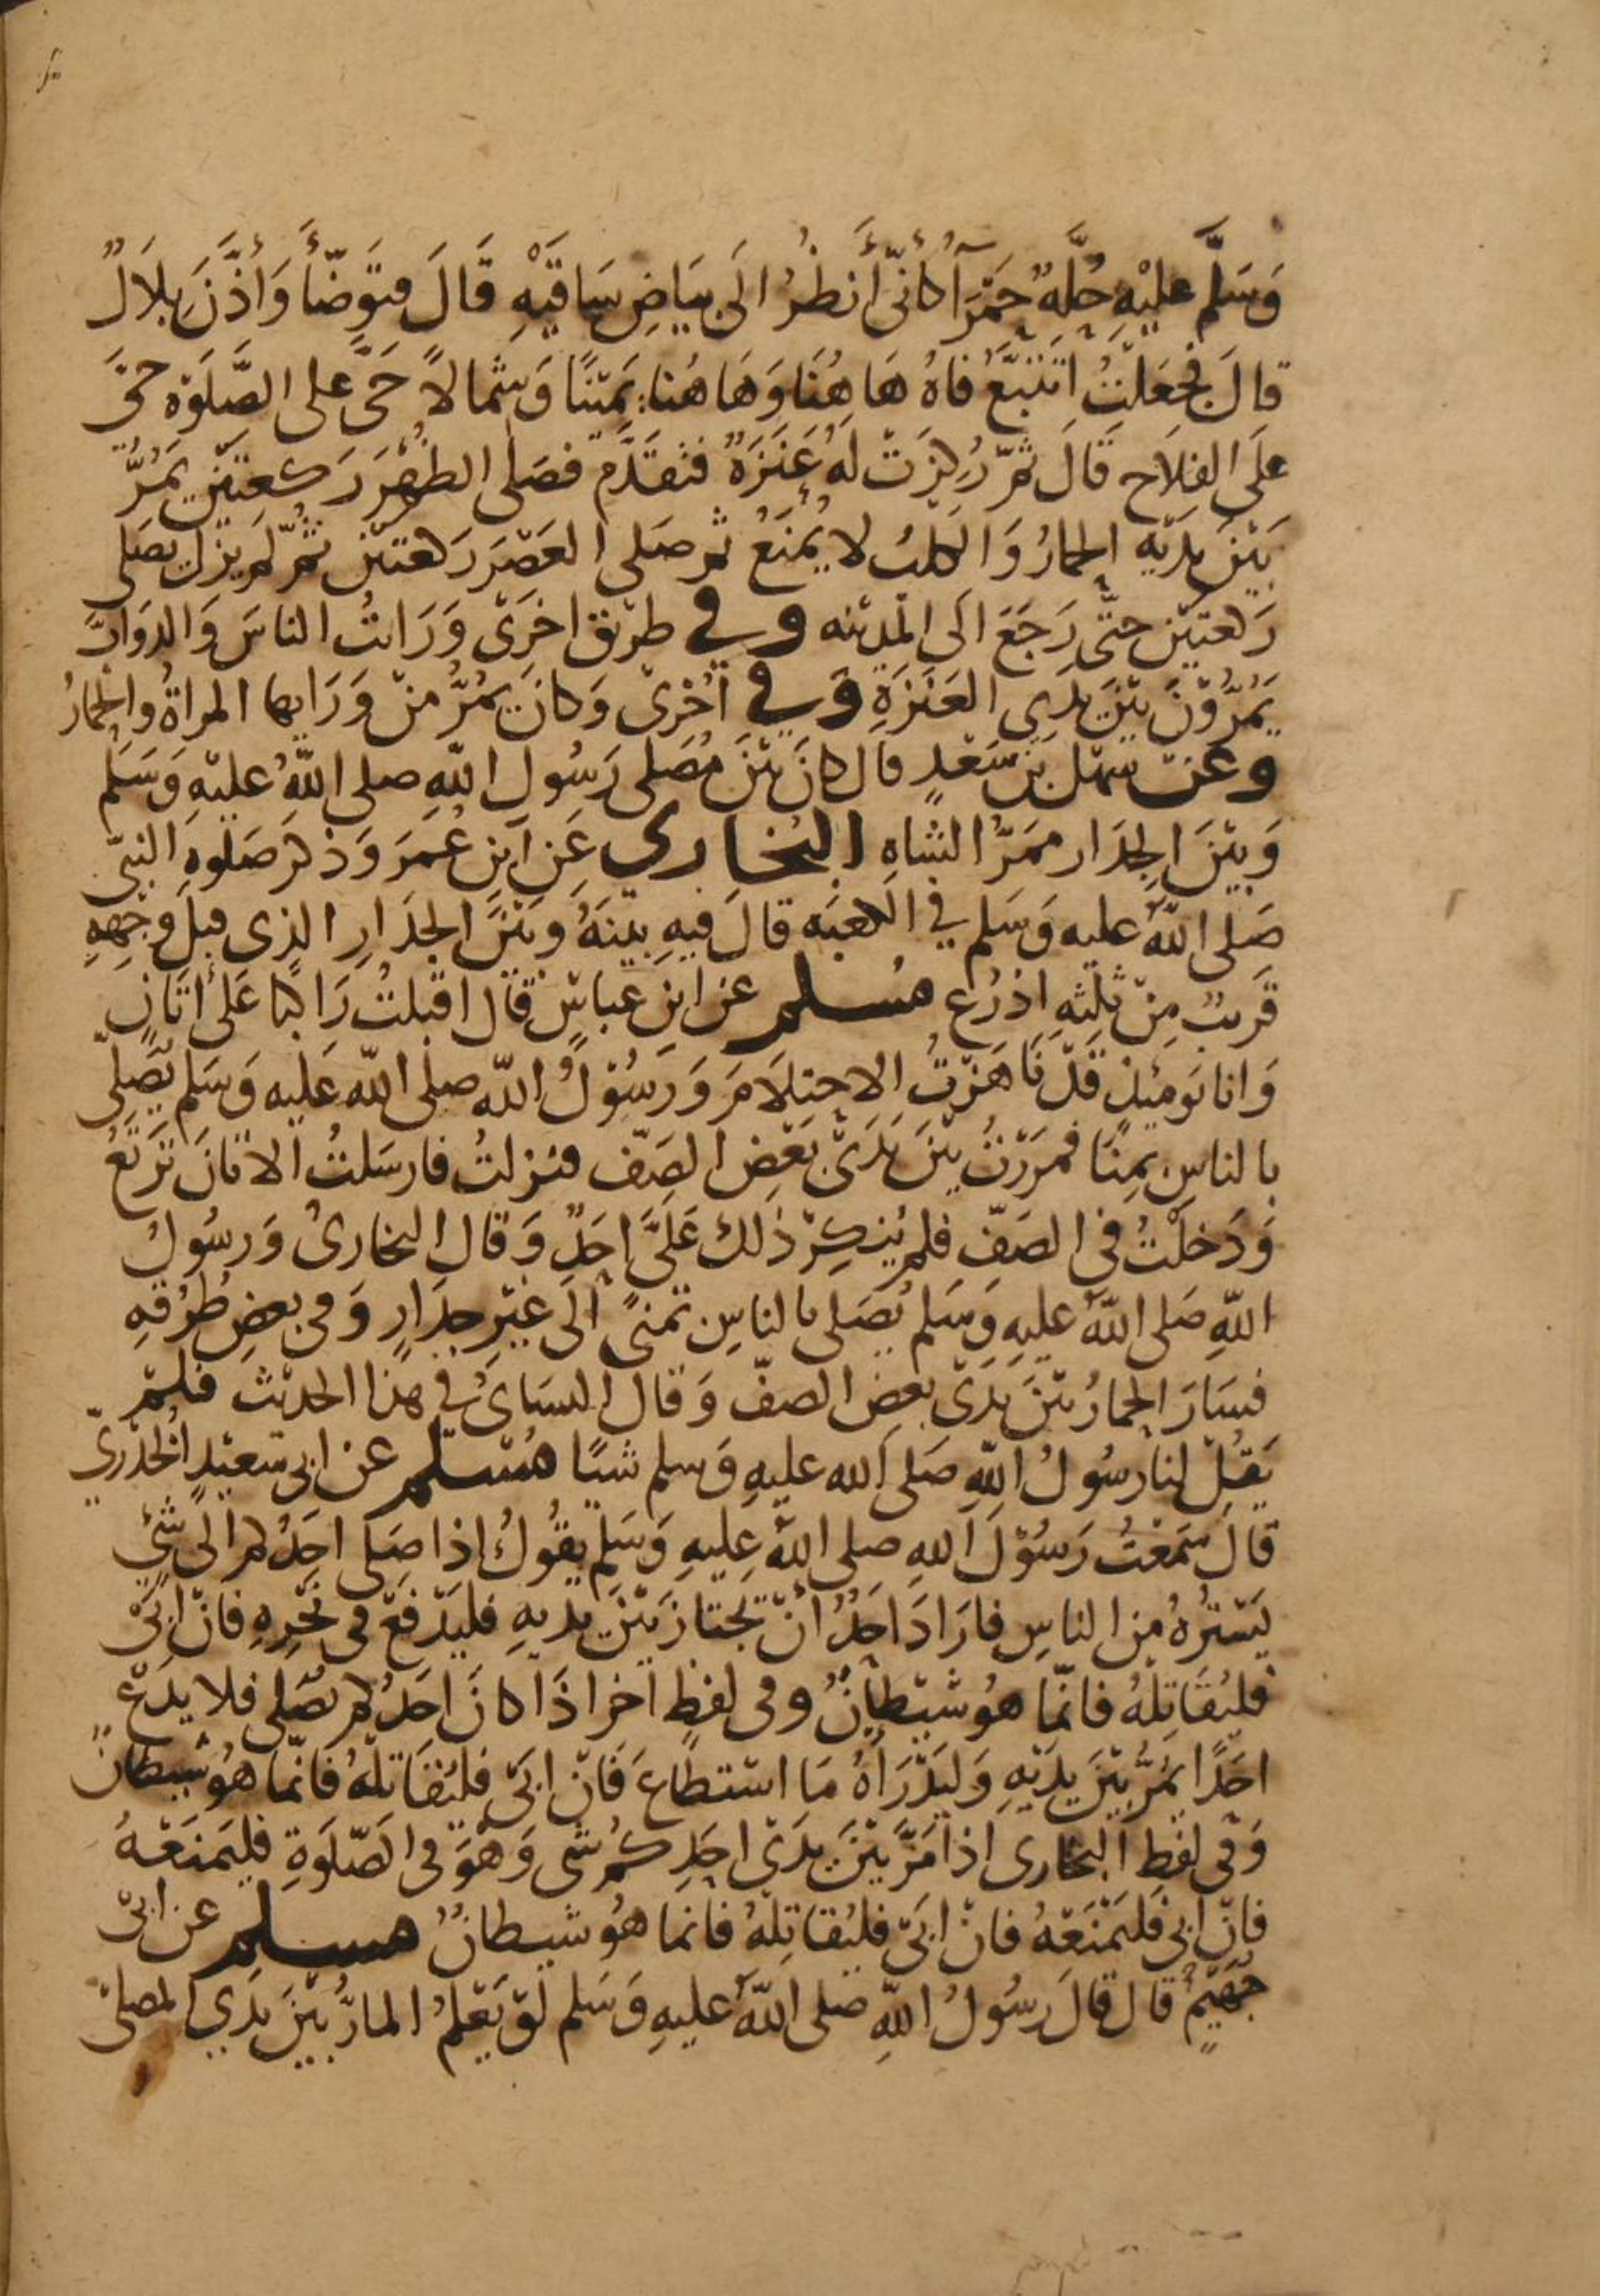 وَسَلَّم عليْهِ حُلَّهٌ حَمْرَآ كأنّى أَنظُرُ الَى بيَاضِ سَاقَيْهِ قَالَ فتَوَضّأَ وَأذَّنَ بِلَالٌ
قالَ فجعَلتُ اتَتَبَّعُ فاهُ هَا هُنَا وَهَا هُنا يَمَيْنًا وَشمالًا حَىَّ على الصَّلَوٰةِ حَىَّ
علَى الفلَاح قَالَ ثمّ رُكِزَتْ لهُ عَنَزَةٌ فتقَدَّم فصَلى الظهْرَ رَكعتَيْنِ يَمُرُّ
بَيْنَ يدَيْهِ الحمارُ وَالكلبُ لا يُمْنَعُ ثم صَلى العَصْرَ رَكعتيْن ثمّ لم يَزل يصَلى
رَكعتيْن حتّى رَجَعَ الَى المدِيْنه وفى طريْق اخرَى وَرَايتُ الناسَ وَالدوَابَّ
يَمُرُّوْنَ بيْنَ يدى العَنَزَةِ وَفى أخْرىٰ وَكانَ يَمُرُّ منْ وَرَايها المراةُ والحمارُ
وعنْ سَهْل بن سَعْدٍ قال كانَ بَيْنَ مُصَلى رَسُولِ اللّهِ صلى اللّهُ عليْهِ وَسَلم
وَبيْنَ الجدَار ممَرّ الشاهِ البُخَارى عَن ابنِ عُمَرَ وَذكرَ صَلوٰةِ النبىّ
صَلى اللّهُ عليه وَسَلم في الكعبَه قالَ فيهِ بيْنهُ وبَيْنَ الجدَارِ الذِى قبلَ وَجْهِهِ
قَريبٌ مِنْ ثلثهِ اذرُع مُسْلم عن ابن عباسٍ قال اقبلتُ رَاكبًا عَلىٰ أتَانٍ
وَانا يَوميْذٍ قَدْ نَاهَزْتُ الاحتلَامَ وَرَسُوْلُ اللّه صلى اللّه عَليه وَسَلم يُصَلىّ
بالناسِ بمِنًا فمَرَرْتُ بيْنَ يَدَىْ بَعْضِ الصَفّ فنزلتُ فارسَلتُ الاتانَ تَرْتَعُ
وَدَخلْتُ فى الصَفّ فلم يُنكِرْ ذٰلك عَلَىَّ احَدٌ وَقال البخارىُ وَرسُولُ
اللّهِ صَلى اللّهُ عليهِ وَسَلم يُصَلى بالناسِ بمنىً الَى غيْرِ جدَارٍ وَفى بعضِ طُرُقهِ
فسَارَ الحمارُ بيْنَ يدَىْ بعضِ الصفّ وَقال النسَاىُ فى هذا الحديْث فلمْ
يَقُلْ لنا رسُولُ اللّهِ صَلى الله عليهِ وَسلم شيًا مُسْلم عن ابى سَعيْدٍ الخدْرىّ
قالَ سَمعْتُ رَسُوْلَ اللهِ صلى اللّهُ عليهِ وَسَلم يقُولُ إذا صَلى احَدُكم الَى شئٍ
يَسْترُهُ من الناسِ فارَادَ احَدٌ انْ يَجتازَ بَيْنَ يديهِ فليَدْفعْ فى نَحْرِهِ فانْ ابَىْ
فليُقَاتلهُ فانّما هوُ شيْطانٌ وفى لفظٍ اٰخر اذَا كانَ احَدُكم يُصَلى فلا يدَعْ
احَدًا يَمُرُّ بيْنَ يدَيْهِ وَليَدْرَاهُ مَا استَطاعَ فَانْ ابَىْ فليُقَاتلهُ فانّما هوُ شيْطانٌ
وَفى لفظِ البخارى اذا مَرَّ بَيْنَ يدَىْ احَدِكُم شى وَهْوَ فى الصّلَوٰةِ فليَمنَعْهُ
فانْ ابى فليَمْنَعْهُ فانْ ابَىْ فليُقاتِلهُ فانما هوُ شيطانٌ مسلم عن ابىْ
جُهيْمٍ قال قالَ رسُولُ اللّهِ صلى اللّهُ عليهِ وَسَلم لوْ يَعْلمُ المارُّ بيْنَ يدَيِ المصلىّ